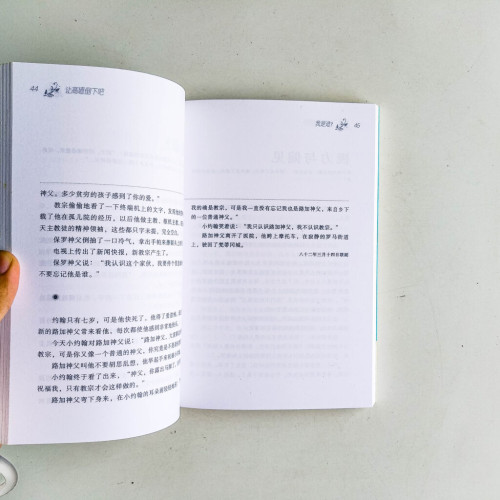 44 让高墙倒下吧
神父,多少贫穷的孩子感到了你的爱。”
教宗偷偷地看了一下终端机上的文字,
载了他在孤儿院的经历,以后他做主教、
天主教徒的精神领袖,这些都只字未提,完全空白。
保罗神父倒抽了一口冷气,拿出手帕来
电视上传出了新闻快报,新教宗产生了。
保罗神父说:“我认识这个家伙,我要
不要忘记他是谁。”
约翰只有七岁,可是他快死了,他得了
新的路加神父常来看他,每次都使他感到
今天小约翰对路加神父说:“路加神父,
教宗,可是你又像一个普通的神父,
路加神父叫他不要胡思乱想,
小约翰终于看了出来,“神父,
祝福我,只有教宗才会这样做的。”
路加神父弯下身来,在小约翰的耳朵
我是谁? 45
我的确是教宗,可是我一直没有忘记我也是路加神父,来自乡下
的一位普通神父。”
小约翰笑着说:“我只认识路加神父,我不认识教宗。”
路加神父离开了医院,他跨上摩托车,在寂静的罗马街道
上,驶回了梵蒂冈城。
八十二年三月十四日联副